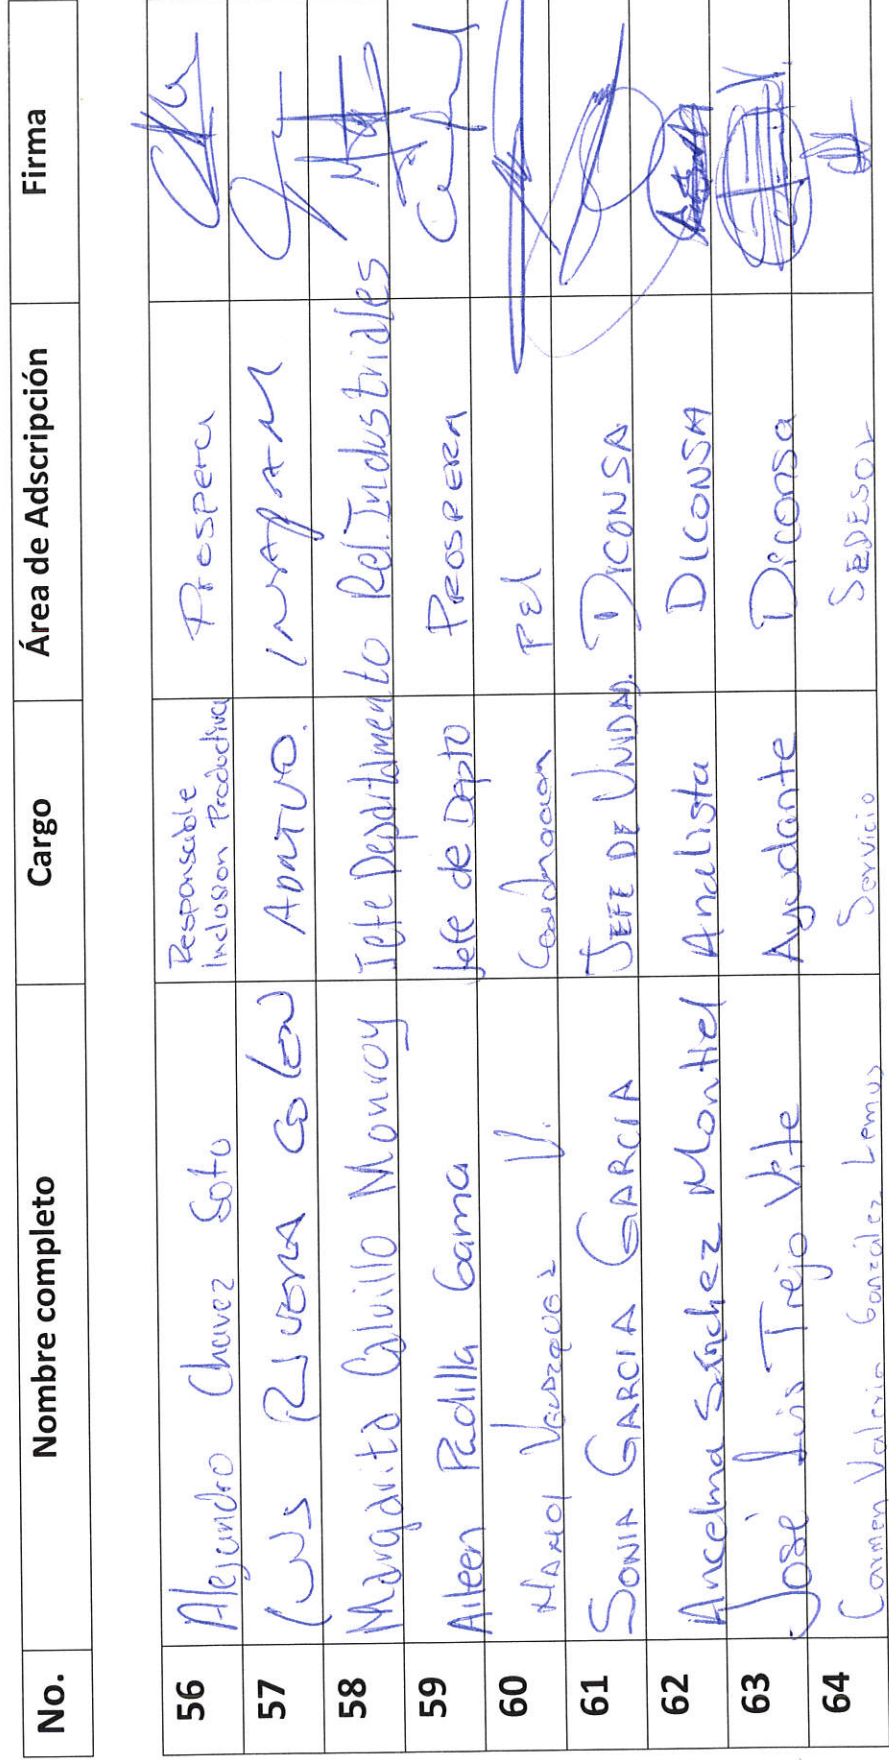 No. Nombre completo Cargo Área de Adscripción Firma
56 Alejandro Chavez Soto Responsable Inclusion Productiva Prospera
57 Luis RIVERA COLON ADMTVO. INAPAM
58 Margarita Calvillo Monroy Jefe Departamento Rel. Industriales
59 Aileen Padilla Gama Jefe de Depto PROSPERA
60 V. Coordinacion
61 SONIA GARCIA GARCIA JEFE DE UNIDAD. DICONSA
62 Ancelma Sánchez Montiel Analista DICONSA
63 José Luis Trejo Vite Ayudante Diconsa
64 Carmen Valeria González Lemus Servicio SEDESOL